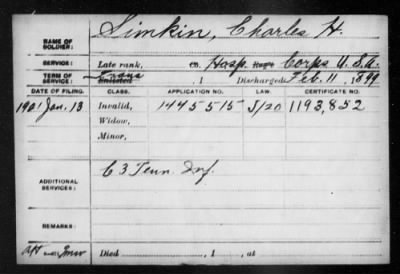 NAME OF SOLDIER: Simkin, Charles H.
SERVICE: Late rank, Co. Hosp. Regt. Corps U.S.A.
TERM OF SERVICE: Enlisted , 1 Discharged Feb. 11, 1899
DATE OF FILING. CLASS. APPLICATION NO. LAW. CERTIFICATE NO.
1901 Jan. 13 Invalid, 1445515 J/20 1193,852
Widow,
Minor,
ADDITIONAL SERVICES: C 3 Tenn. Inf.
REMARKS:
Died , 1 , at